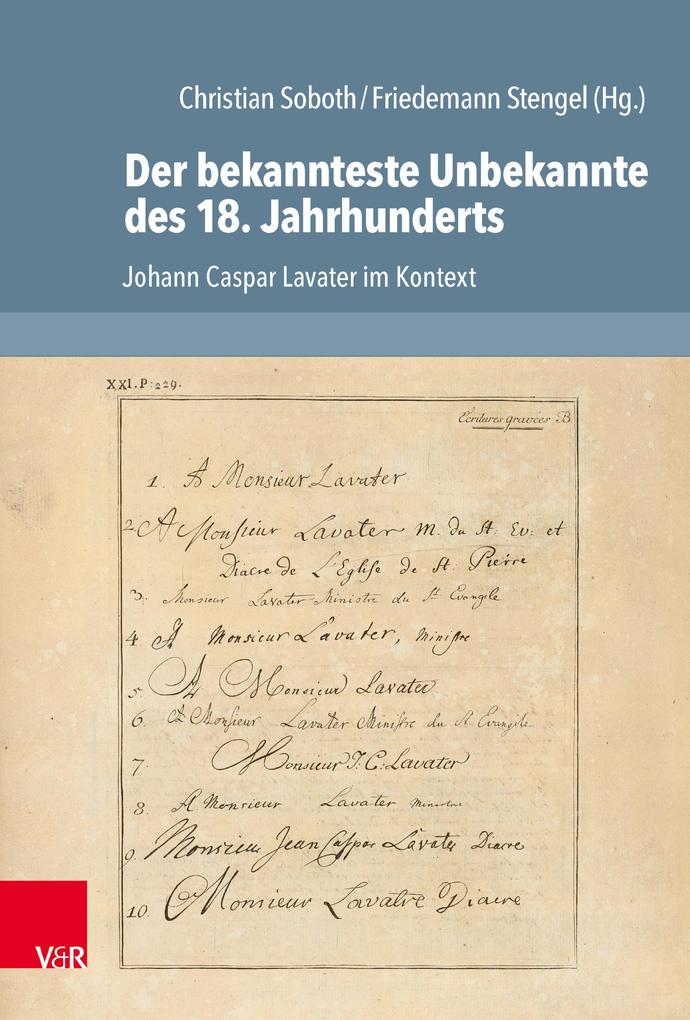 Christian Soboth / Friedemann Stengel (Hg.)
Der bekannteste Unbekannte
des 18. Jahrhunderts
Johann Caspar Lavater im Kontext
XXI. P: 229.
Ecritures gravées B.
1. A Monsieur Lavater
2. A Monsieur Lavater M. du St. Ev: et
Diacre de L'Eglise de St. Pierre
3. Monsieur Lavater Ministre du St. Evangile
4. A Monsieur Lavater, Ministre
5. A Monsieur Lavater
6. A Monsieur Lavater Ministre du St. Evangile
7. Monsieur J. C. Lavater
8. A Monsieur Lavater Ministre
9. Monsieur Jean Caspar Lavater Diacre
10. Monsieur Lavatre Diacre
V&R